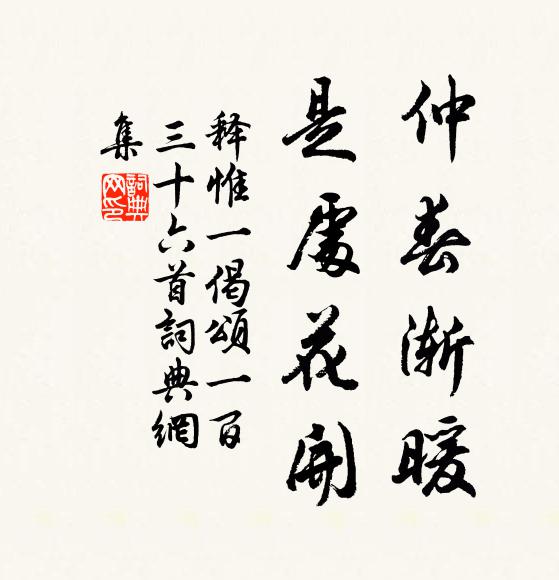 仲春漸暖
是處花開
释惟一偈頌一百
三十六首詞典網
集
詞典
网印